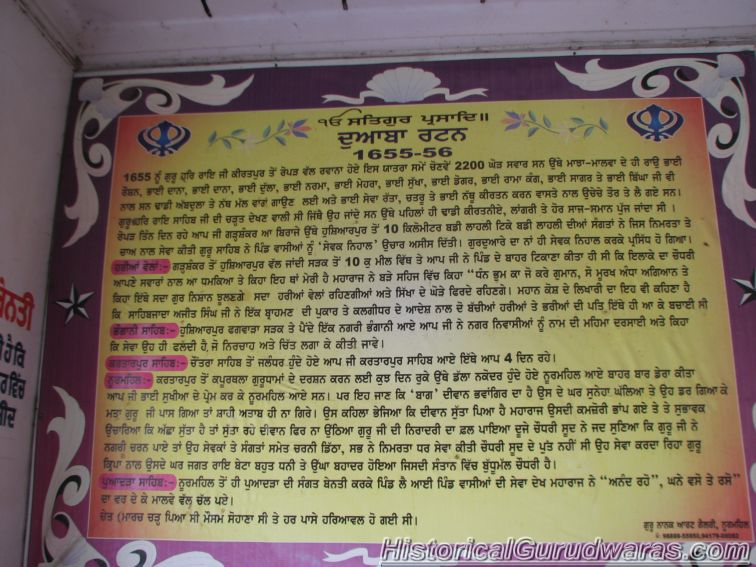 ੴ ਸਤਿਗੁਰ ਪ੍ਰਸਾਦਿ॥
ਦੁਆਬਾ ਰਟਨ
1655-56
1655 ਨੂੰ ਗੁਰੂ ਹਰਿ ਰਾਇ ਜੀ ਕੀਰਤਪੁਰ ਤੋਂ ਰੋਪੜ ਵੱਲ ਰਵਾਨਾ ਹੋਏ ਇਸ ਯਾਤਰਾ ਸਮੇਂ ਚੋਣਵੇਂ 2200 ਘੋੜ ਸਵਾਰ ਸਨ ਉਥੇ ਮਾਝਾ-ਮਾਲਵਾ ਦੇ ਹੀ ਰਾਉ ਭਾਈ
ਰੋਸ਼ਨ, ਭਾਈ ਦਾਨਾ, ਭਾਈ ਦਾਨਾ, ਭਾਈ ਦੁੱਲਾ, ਭਾਈ ਨਰਮਾ, ਭਾਈ ਮੇਹਰਾ, ਭਾਈ ਸੁੱਖਾ, ਭਾਈ ਡੋਗਰ, ਭਾਈ ਰਾਮਾ ਕੰਗ, ਭਾਈ ਸਾਗਰ ਤੇ ਭਾਈ ਬਿੰਘਾ ਜੀ ਵੀ
ਨਾਲ ਸਨ ਢਾਡੀ ਅੱਬਦੁਲਾ ਤੇ ਨੱਥ ਮੱਲ ਵਾਰਾਂ ਗਾਉਣ ਲਈ ਅਤੇ ਭਾਈ ਸੇਵਾ ਰੱਤਾ, ਚਤਰੂ ਤੇ ਭਾਈ ਨੱਥੂ ਕੀਰਤਨ ਕਰਨ ਵਾਸਤੇ ਨਾਲ ਉਚੇਚੇ ਤੌਰ ਤੇ ਲੈ ਗਏ ਸਨ।
ਗੁਰੂ ਹਰਿ ਰਾਇ ਸਾਹਿਬ ਜੀ ਦੀ ਚੜ੍ਹਤ ਦੇਖਣ ਵਾਲੀ ਸੀ ਜਿੱਥੇ ਉਹ ਜਾਂਦੇ ਸਨ ਉਥੇ ਪਹਿਲਾਂ ਹੀ ਢਾਡੀ ਕੀਰਤਨੀਏ, ਲਾਂਗਰੀ ਤੇ ਹੋਰ ਸਾਜ-ਸਮਾਨ ਪੁੱਜ ਜਾਂਦਾ ਸੀ ।
ਰੋਪੜ ਤਿੰਨ ਦਿਨ ਰਹੇ ਆਪ ਜੀ ਗੜ੍ਹਸ਼ੰਕਰ ਆ ਬਿਰਾਜੇ ਉਥੇ ਹੁਸ਼ਿਆਰਪੁਰ ਤੋਂ 10 ਕਿਲੋਮੀਟਰ ਬਡੀ ਲਾਹਲੀ ਟਿਕੇ ਬਡੀ ਲਾਹਲੀ ਦੀਆਂ ਸੰਗਤਾਂ ਨੇ ਜਿਸ ਨਿਮਰਤਾ ਤੇ
ਚਾਅ ਨਾਲ ਸੇਵਾ ਕੀਤੀ ਗੁਰੂ ਸਾਹਿਬ ਨੇ ਪਿੰਡ ਵਾਸੀਆਂ ਨੂੰ 'ਸੇਵਕ ਨਿਹਾਲ' ਉਚਾਰ ਅਸੀਸ ਦਿੱਤੀ। ਗੁਰਦੁਆਰੇ ਦਾ ਨਾਂ ਹੀ ਸੇਵਕ ਨਿਹਾਲ ਕਰਕੇ ਪ੍ਰਸਿੱਧ ਹੋ ਗਿਆ।
ਹਰੀਆਂ ਵੇਲਾਂ:- ਗੜ੍ਹਸ਼ੰਕਰ ਤੋਂ ਹੁਸ਼ਿਆਰਪੁਰ ਵੱਲ ਜਾਂਦੀ ਸੜਕ ਤੋਂ 10 ਕੁ ਮੀਲ ਵਿੱਥ ਤੇ ਆਪ ਜੀ ਨੇ ਪਿੰਡ ਦੇ ਬਾਹਰ ਟਿਕਾਣਾ ਕੀਤਾ ਹੀ ਸੀ ਕਿ ਇਲਾਕੇ ਦਾ ਚੌਧਰੀ
ਆਪਣੇ ਸਵਾਰਾਂ ਨਾਲ ਆ ਧਮਕਿਆ ਤੇ ਕਿਹਾ ਇਹ ਥਾਂ ਮੇਰੀ ਹੈ ਮਹਾਰਾਜ ਨੇ ਬੜੇ ਸਹਿਜ ਵਿੱਚ ਕਿਹਾ "ਧੰਨ ਭੂਮ ਕਾ ਜੋ ਕਰੇ ਗੁਮਾਨ, ਸੋ ਮੂਰਖ ਅੰਧਾ ਅਗਿਆਨ ਤੇ
ਕਿਹਾ ਇੱਥੇ ਸਦਾ ਗੁਰ ਨਿਸ਼ਾਨ ਝੂਲਣਗੇ ਸਦਾ ਹਰੀਆਂ ਵੇਲਾਂ ਰਹਿਣਗੀਆਂ ਅਤੇ ਸਿੱਖਾਂ ਦੇ ਘੋੜੇ ਫਿਰਦੇ ਰਹਿਣਗੇ। ਮਹਾਨ ਕੋਸ਼ ਦੇ ਲਿਖਾਰੀ ਦਾ ਇਹ ਵੀ ਕਹਿਣਾ ਹੈ
ਕਿ ਸਾਹਿਬਜਾਦਾ ਅਜੀਤ ਸਿੰਘ ਜੀ ਨੇ ਇੱਕ ਬ੍ਰਾਹਮਣ ਦੀ ਪੁਕਾਰ ਤੇ ਕਲਗੀਧਰ ਦੇ ਆਦੇਸ਼ ਨਾਲ ਦੋ ਬੱਚੀਆਂ ਹਰੀਆਂ ਤੇ ਭਰੀਆਂ ਦੀ ਪਤਿ ਇੱਥੇ ਹੀ ਆ ਕੇ ਬਚਾਈ ਸੀ
ਭੰਗਾਨੀ ਸਾਹਿਬ:- ਹੁਸ਼ਿਆਰਪੁਰ ਫਗਵਾੜਾ ਸੜਕ ਤੇ ਪੈਂਦੇ ਇੱਕ ਨਗਰੀ ਭੰਗਾਨੀ ਆਏ ਆਪ ਜੀ ਨੇ ਨਗਰ ਨਿਵਾਸੀਆਂ ਨੂੰ ਨਾਮ ਦੀ ਮਹਿਮਾ ਦਰਸਾਈ ਅਤੇ ਕਿਹਾ
ਕਿ ਸੇਵਾ ਉਹ ਹੀ ਫਲਦੀ ਹੈ, ਜੋ ਨਿਰਚਾਹ ਅਤੇ ਚਿੱਤ ਲਗਾ ਕੇ ਕੀਤੀ ਜਾਵੇ।
ਕਰਤਾਰਪੁਰ ਸਾਹਿਬ:- ਚੌਂਤਰਾ ਸਾਹਿਬ ਤੋਂ ਜਲੰਧਰ ਹੁੰਦੇ ਹੋਏ ਆਪ ਜੀ ਕਰਤਾਰਪੁਰ ਸਾਹਿਬ ਆਏ ਇੱਥੇ ਆਪ 4 ਦਿਨ ਰਹੇ।
ਨੂਰਮਹਿਲ:- ਕਰਤਾਰਪੁਰ ਤੋਂ ਕਪੂਰਥਲਾ ਗੁਰੂਧਾਮਾਂ ਦੇ ਦਰਸ਼ਨ ਕਰਨ ਲਈ ਕੁਝ ਦਿਨ ਰੁਕੇ ਉਥੇ ਡੱਲਾ ਨਕੋਦਰ ਹੁੰਦੇ ਹੋਏ ਨੂਰਮਹਿਲ ਆਏ ਬਾਹਰ ਬਾਰ ਡੇਰਾ ਕੀਤਾ
ਆਪ ਜੀ ਭਾਈ ਸੁਖੀਆ ਦੇ ਪ੍ਰੇਮ ਕਰ ਕੇ ਨੂਰਮਹਿਲ ਆਏ ਸਨ। ਪਰ ਇਹ ਜਾਣ ਕਿ 'ਬਾਗ' ਦੀਵਾਨ ਭਵਾਂਗਿਰ ਦਾ ਹੈ ਉਸ ਦੇ ਘਰ ਸੁਨੇਹਾ ਘੱਲਿਆ ਤੇ ਉਹ ਡਰ ਗਿਆ ਕੇ
ਮਤਾ ਗੁਰੂ ਜੀ ਪਾਸ ਗਿਆ ਤਾਂ ਸ਼ਾਹੀ ਅਤਾਬ ਹੀ ਨਾ ਗਿਰੇ। ਉਸ ਕਹਿਲਾ ਭੇਜਿਆ ਕਿ ਦੀਵਾਨ ਸੁੱਤਾ ਪਿਆ ਹੈ ਮਹਾਰਾਜ ਉਸਦੀ ਕਮਜ਼ੋਰੀ ਭਾਂਪ ਗਏ ਤੇ ਤੇ ਸੁਭਾਵਕ
ਉਚਾਰਿਆ ਕਿ ਅੱਛਾ ਸੁੱਤਾ ਹੈ ਤਾਂ ਸੁੱਤਾ ਰਹੇ ਚਾਹਨੇ ਦੀਵਾਨ ਫਿਰ ਨਾ ਉਠਿਆ ਗੁਰੂ ਜੀ ਦੀ ਨਿਰਾਦਰੀ ਦਾ ਫ਼ਲ ਪਾਇਆ ਦੂਜੇ ਚੌਧਰੀ ਸੂਦ ਨੇ ਜਦ ਸੁਣਿਆ ਕਿ ਗੁਰੂ ਜੀ ਨੇ
ਨਗਰੀ ਚਰਨ ਪਾਏ ਤਾਂ ਉਹ ਸੇਵਕਾਂ ਤੇ ਸੰਗਤਾਂ ਸਮੇਤ ਚਰਨੀ ਡਿੱਠਾ, ਸਭ ਨੇ ਨਿਮਰਤਾ ਧਰ ਸੇਵਾ ਕੀਤੀ ਚੌਧਰੀ ਸੂਦ ਦੇ ਪੁੱਤ ਨਹੀਂ ਸੀ ਉਹ ਸੇਵਾ ਕਰਦਾ ਰਿਹਾ ਗੁਰੂ
ਕ੍ਰਿਪਾ ਨਾਲ ਉਸਦੇ ਘਰ ਜਗਤ ਰਾਇ ਬੇਟਾ ਬਹੁਤ ਧਨੀ ਤੇ ਉੱਘਾ ਬਹਾਦਰ ਹੋਇਆ ਜਿਸਦੀ ਸੰਤਾਨ ਵਿੱਚ ਬੁੱਧੂਮੱਲ ਚੌਧਰੀ ਹੈ।
ਪੁਆਦੜਾ ਸਾਹਿਬ:- ਨੂਰਮਹਿਲ ਤੋਂ ਹੀ ਪੁਆਦੜਾ ਦੀ ਸੰਗਤ ਬੇਨਤੀ ਕਰਕੇ ਪਿੰਡ ਲੈ ਆਈ ਪਿੰਡ ਵਾਸੀਆਂ ਦੀ ਸੇਵਾ ਦੇਖ ਮਹਾਰਾਜ ਨੇ "ਅਨੰਦ ਰਹੋ", ਘਨੇ ਵਸੋ ਤੇ ਰਸੋ"
ਦਾ ਵਰ ਦੇ ਕੇ ਮਾਲਵੇ ਵੱਲ ਚੱਲ ਪਏ।
ਚੇਤ (ਮਾਰਚ ਚੜ੍ਹ ਪਿਆ ਸੀ ਮੌਸਮ ਸੋਹਾਣਾ ਸੀ ਤੇ ਹਰ ਪਾਸੇ ਹਰਿਆਵਲ ਹੋ ਗਈ ਸੀ।
ਗੁਰੂ ਨਾਨਕ ਆਰਟ ਗੈਲਰੀ, ਨੂਰਮਹਿਲ
ਬੇਨਤੀ
HistoricalGurudwaras.com